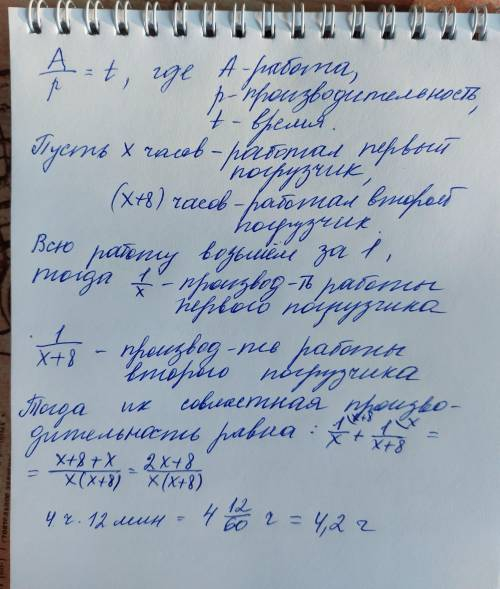 A/p = t, где A - работа,
p - производительность,
t - время.
Пусть x часов - работал первый
погрузчик,
(x+8) часов - работал второй
погрузчик.
Всю работу возьмём за 1,
тогда 1/x - производ-ть работы
первого погрузчика
1/(x+8) - производ-ть работы
второго погрузчика
Тогда их совместная произво-
дительность равна: 1/x^(x+8) + 1/(x+8)^(x) =
= (x+8+x)/(x(x+8)) = (2x+8)/(x(x+8))
4 ч. 12 мин = 4 12/60 ч = 4,2 ч